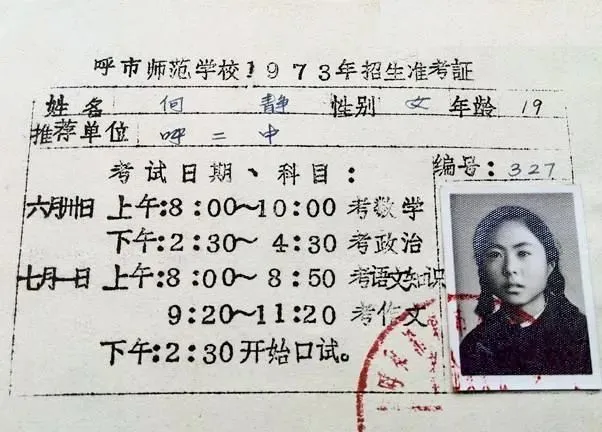 呼市师范学校1973年招生准考証
姓名 何静 性别 女 年龄 19
推荐单位 呼二中
考试日期、科目: 编号: 327
六月卅日 上午:8:00~10:00 考数学
下午:2:30~4:30 考政治
七月一日 上午:8:00~8:50 考语文知识
9:20~11:20 考作文
下午:2:30开始口试。